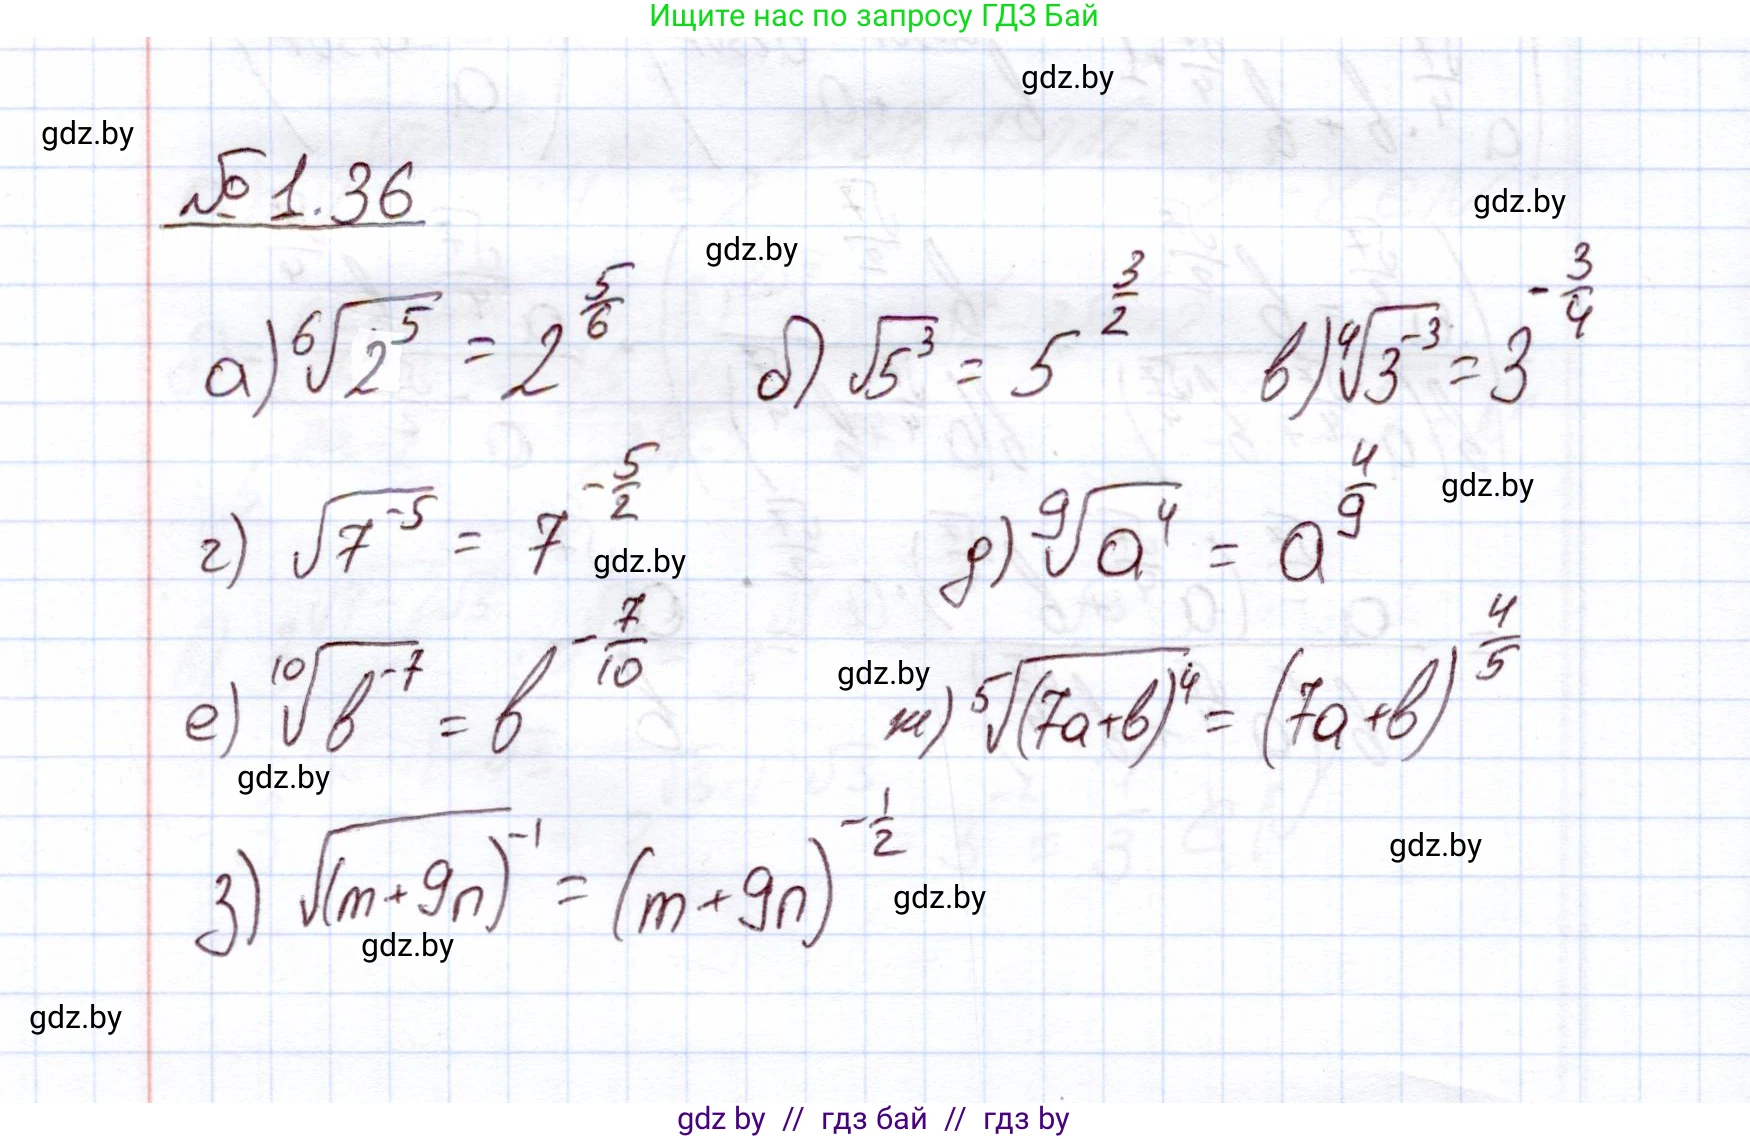 Ищите нас по запросу ГДЗ Бай
gdz.by
gdz.by
№ 1.36
gdz.by
gdz.by
а) ⁶√2⁵ = 2^(5/6) б) √5³ = 5^(3/2) в) ⁴√3⁻³ = 3^(-3/4)
г) √7⁻⁵ = 7^(-5/2) д) ⁹√a⁴ = a^(4/9)
gdz.by
gdz.by
е) ¹⁰√b⁻⁷ = b^(-7/10) ж) ⁵√(7a+b)⁴ = (7a+b)^(4/5)
gdz.by
gdz.by
з) √(m+9n)⁻¹ = (m+9n)^(-1/2)
gdz.by
gdz.by
gdz.by
gdz.by
gdz by // гдз бай // гдз by